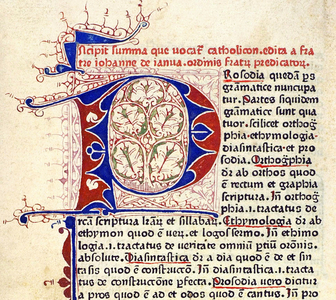 Incipit summa que vocat catholicon. edita a fra
tre iohanne de ianua. ordinis fratrum predicatorum.
Prosodia quedam pars
gramatice nuncupa
tur. Partes siquidem
gramatice sunt qua
tuor. scilicet orthographia
phia. ethymologia.
diasintastica. et pro
sodia. Orthographia
dr ab orthos quod
est rectum et graphia
scriptura. In orthogra
phia .i. tractatus de
recta scriptura lrarum et sillabarum. Ethymologia dr ab
ethymon quod est verum. et logos sermo. In ethimo
logia .i. tractatus de veritate omnium partium orationis.
absolute. Diasintastica dr a dia quod est de et sin
tasis quod est constructio. In diasintastica .i. tracta
tus de constructione perfecta. Prosodia vero dicitur
a pros quod est ad et odos quod est cantus. In pro